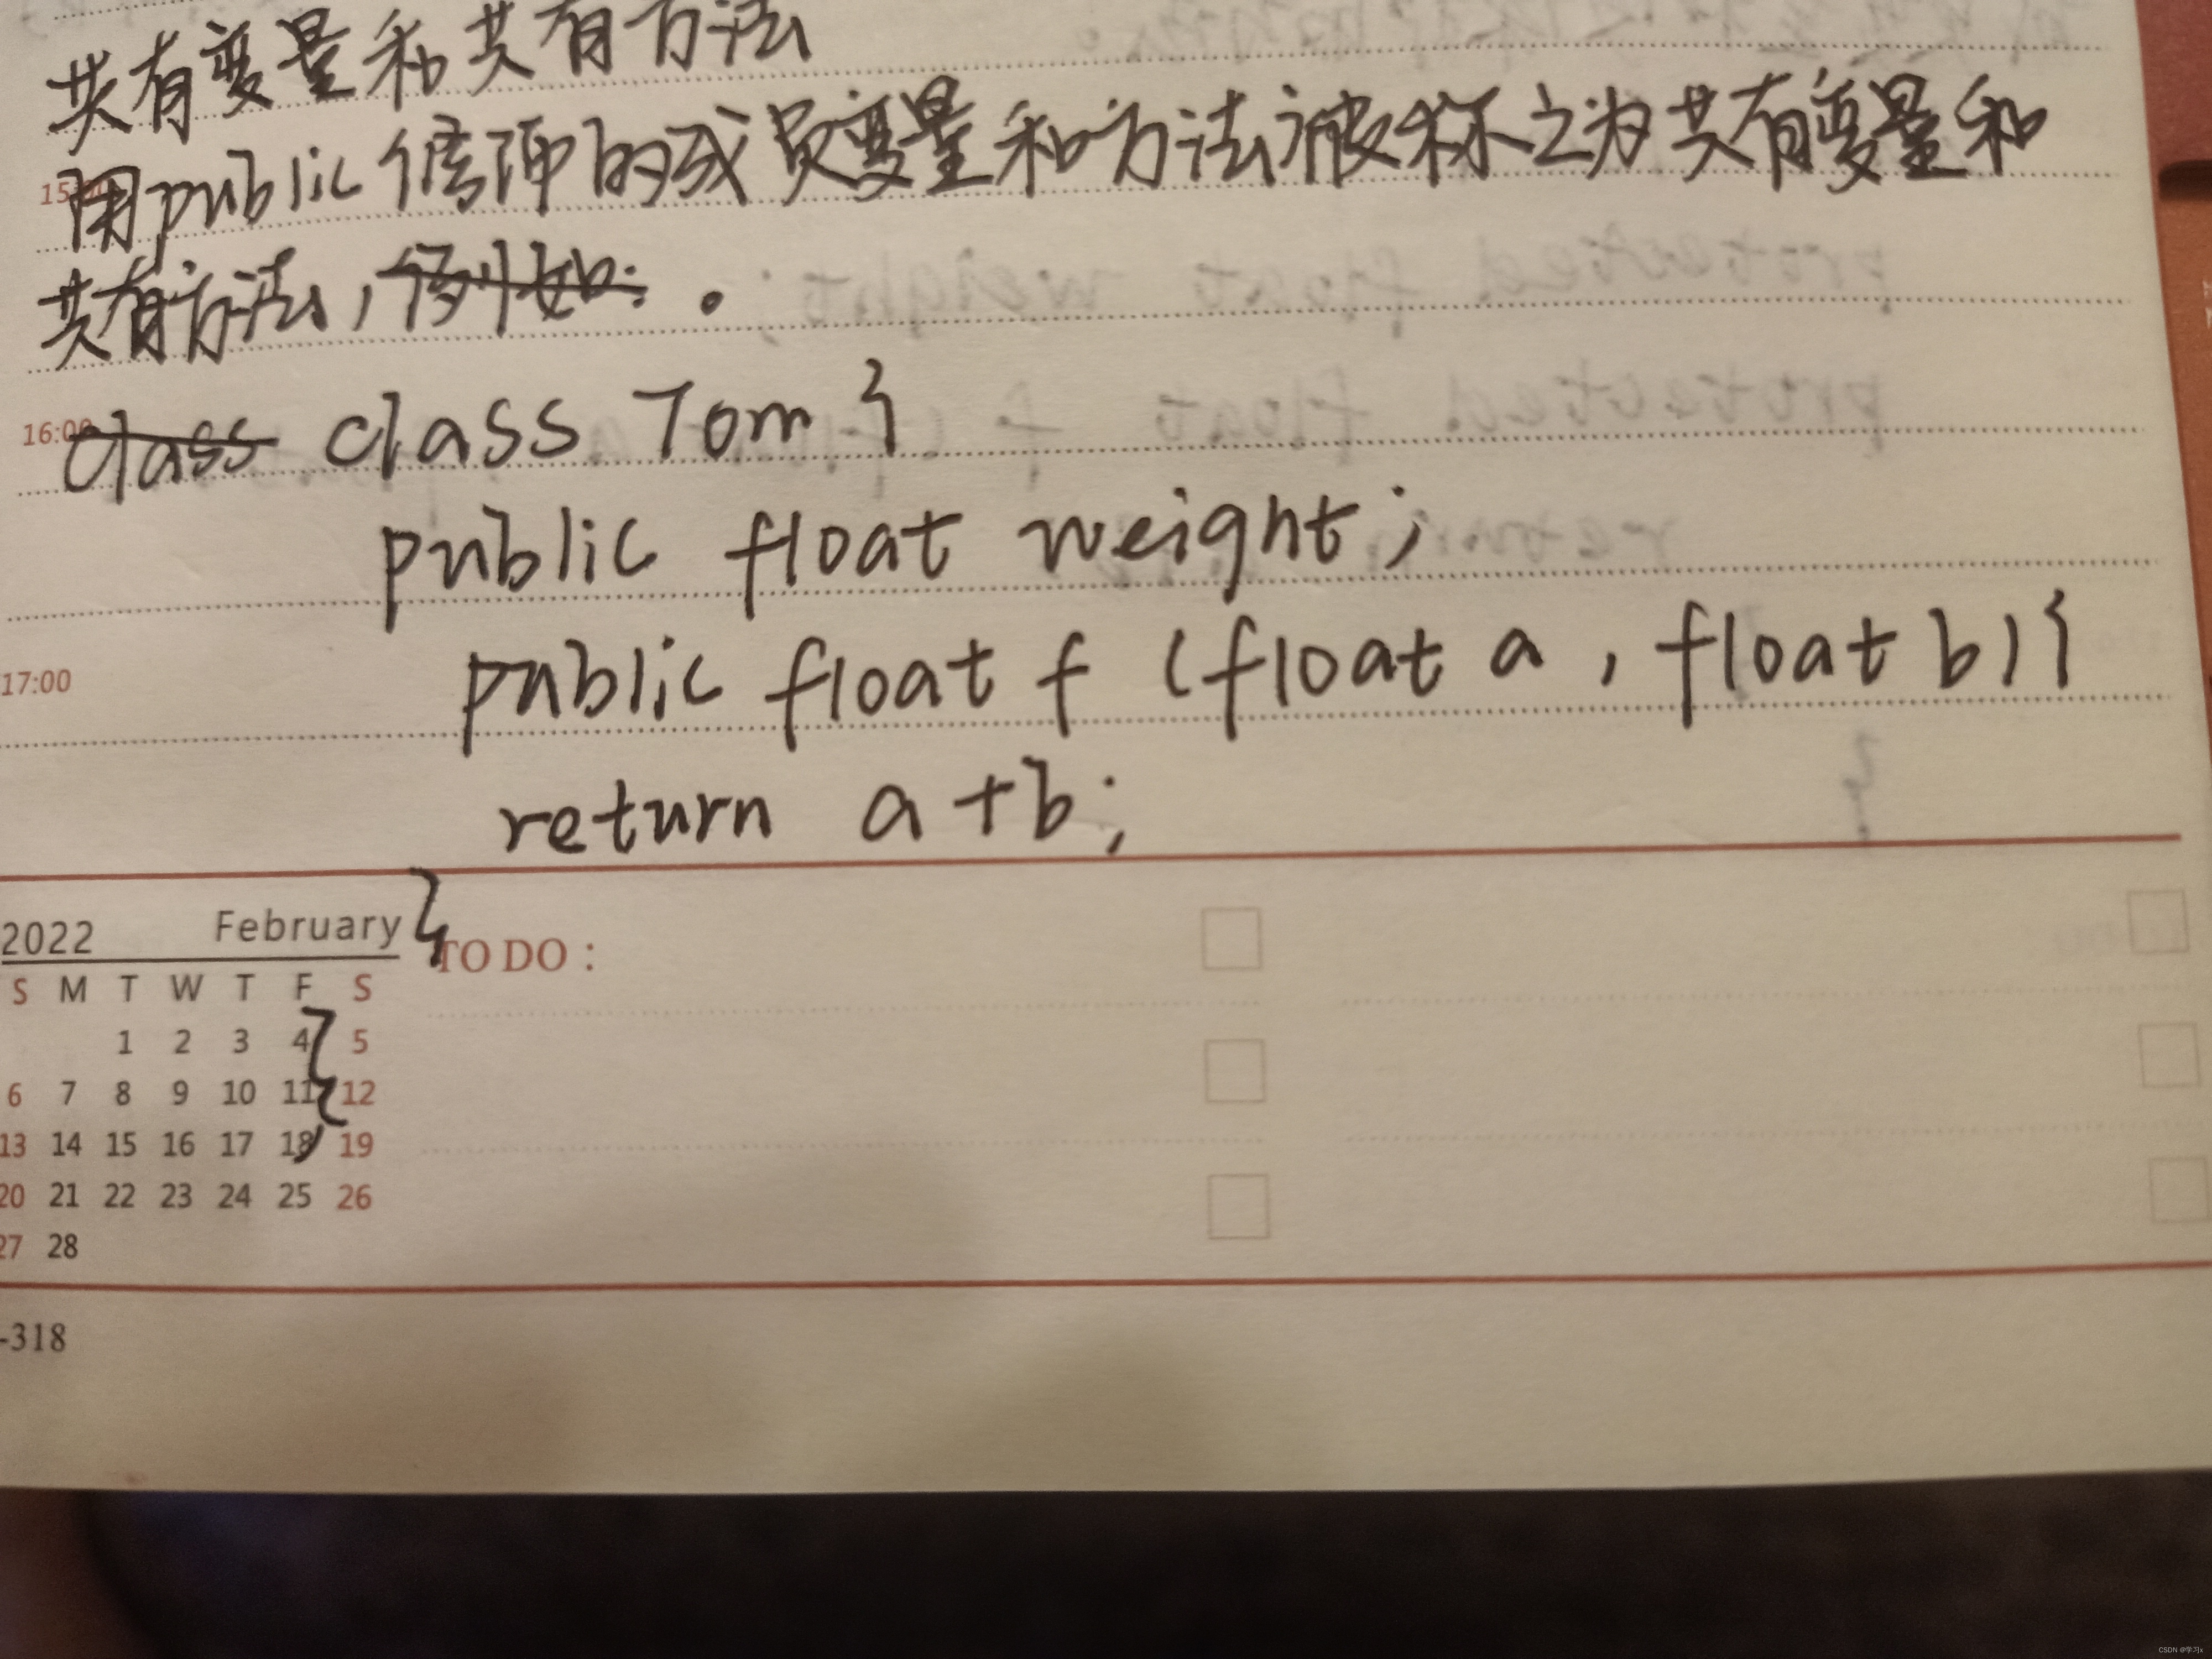 共有变量和共有方法
15:00 用public修饰的成员变量和方法被称之为共有变量和
共有方法,例如: 。
16:00 class class Tom {
public float weight;
public float f (float a , float b) {
17:00
return a+b;
}
2022 February
TO DO :
S M T W T F S
1 2 3 4 5
}
6 7 8 9 10 11 12
13 14 15 16 17 18 19
20 21 22 23 24 25 26
27 28
-318
CSDN @学习x